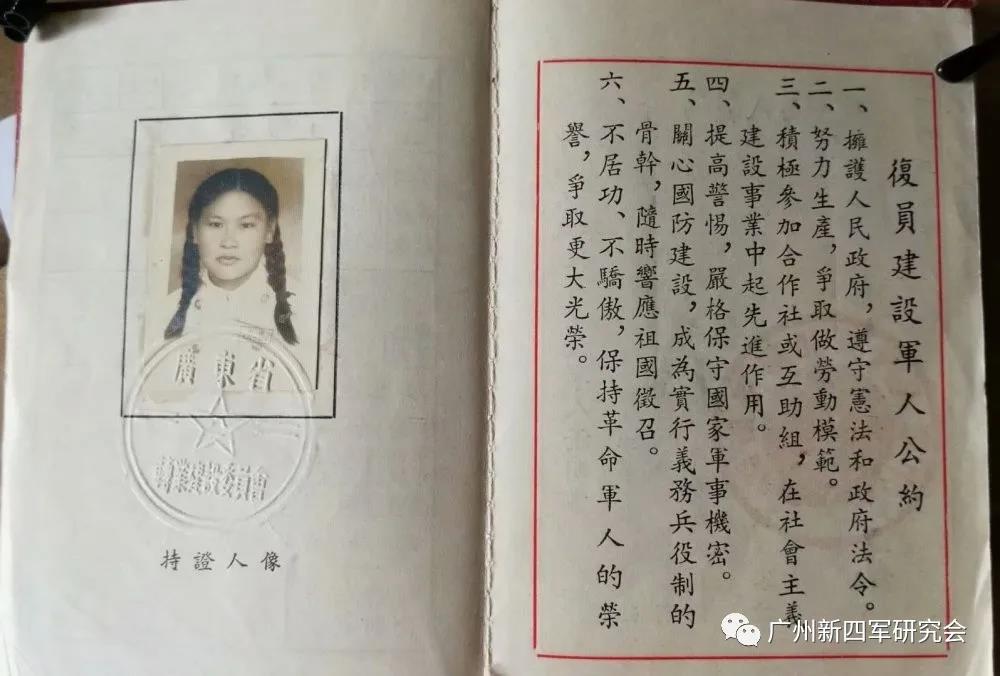 復員建設軍人公約
一、擁護人民政府，遵守憲法和政府法令。
二、努力生產，爭取做勞動模範。
三、積極參加合作社或互助組，在社會主義
建設事業中起先進作用。
四、提高警惕，嚴格保守國家軍事機密。
五、關心國防建設，成為實行義務兵役制的
骨幹，隨時響應祖國徵召。
六、不居功、不驕傲，保持革命軍人的榮
譽，爭取更大光榮。
廣東省
轉業建設委員會
持證人像
广州新四军研究会